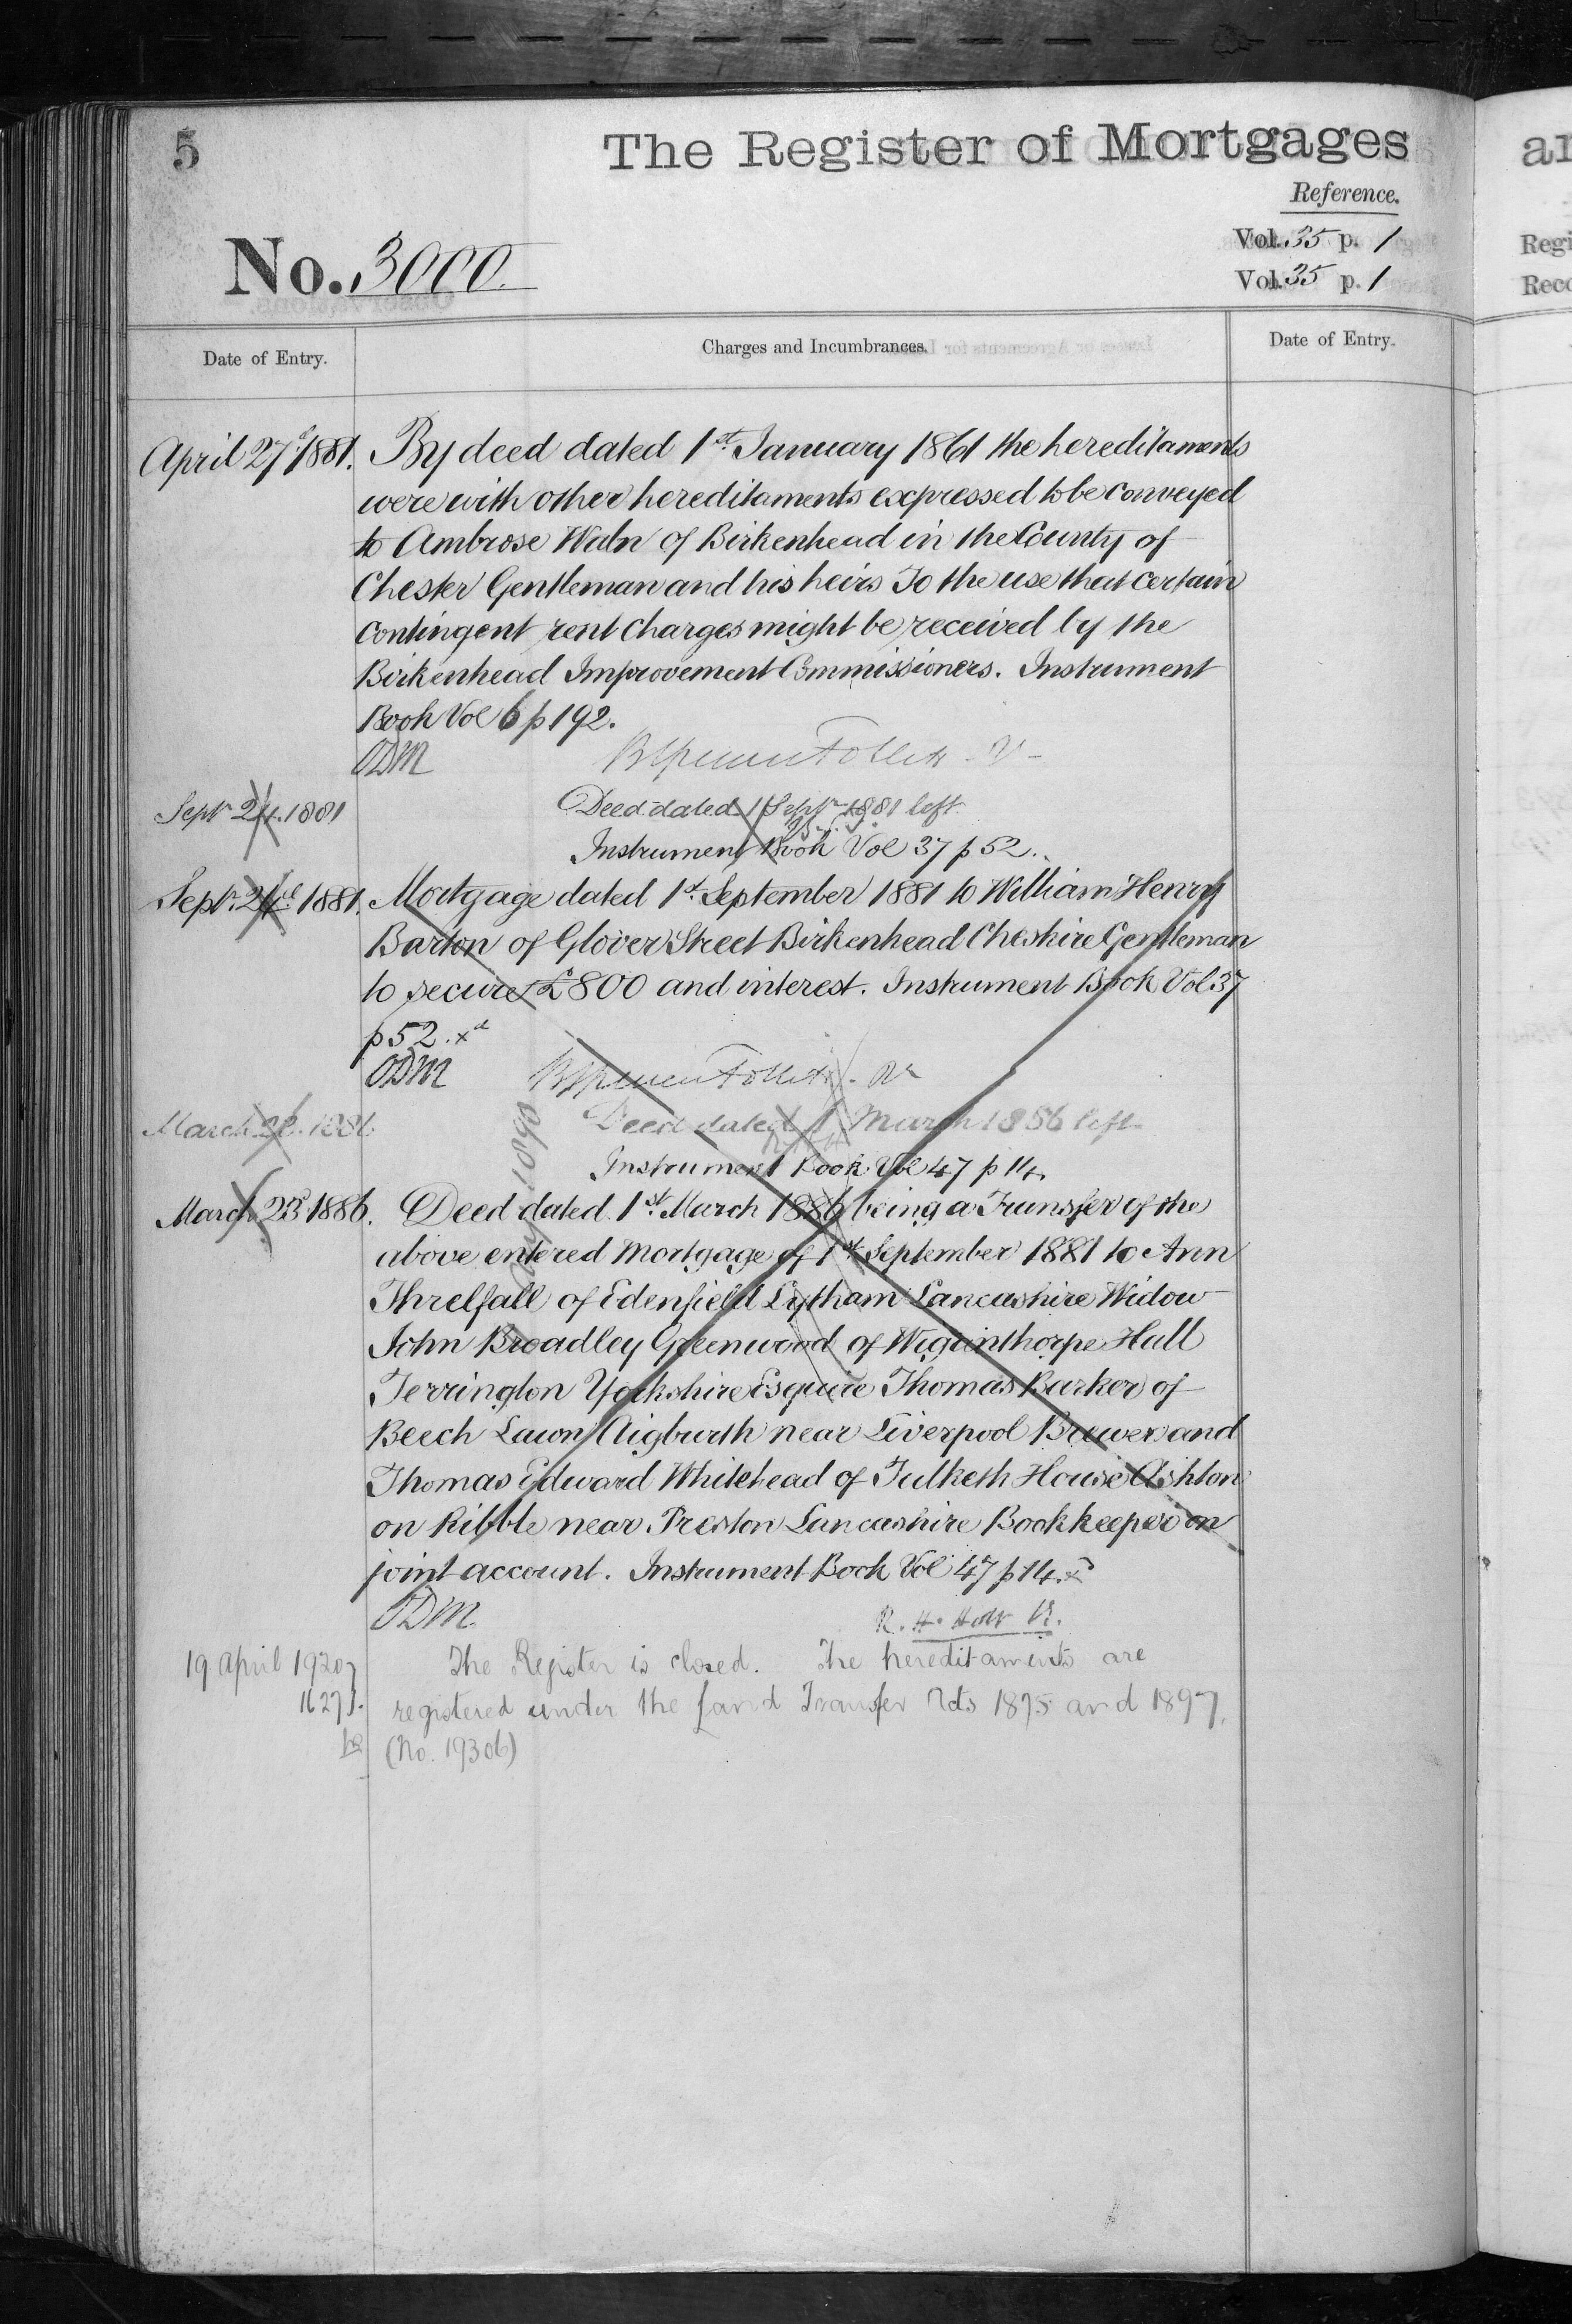 5
The Register of Mortgages
Reference.
No. 3000.
Vol. 35 p. 1
Vol. 35 p. 1
Date of Entry.
Charges and Incumbrances.
Date of Entry.
April 27th 1881. By deed dated 1st January 1861 the hereditaments
were with other hereditaments expressed to be conveyed
to Ambrose Waln of Birkenhead in the County of
Chester Gentleman and his heirs To the use that certain
contingent rent charges might be received by the
Birkenhead Improvement Commissioners. Instrument
Book Vol 6 p 192.
ODM
Sept 1881 Deed dated 1 Sept 1881 left
Instrument Book Vol 37 p 52.
Sept. 1881. Mortgage dated 1st September 1881 to William Henry
Barton of Glover Street Birkenhead Cheshire Gentleman
to secure £800 and interest. Instrument Book Vol 37
p 52. xd
ODM
March Deed dated 1 March left
Instrument Book Vol 47 p 14
March 23 1886. Deed dated 1st March 1886 being a Transfer of the
above entered Mortgage of 1st September 1881 to Ann
Threlfall of Edenfield Lytham Lancashire Widow
John Broadley Greenwood of Wiginthorpe Hall
Terrington Yorkshire Esquire Thomas Barker of
Beech Lawn Aigburth near Liverpool Brewer and
Thomas Edward Whitehead of Tulketh House Ashton
on Ribble near Preston Lancashire Bookkeeper on
joint account. Instrument Book Vol 47 p 14. xd
ODM
R. H. Holt
19 April 1920 The Register is closed. The hereditaments are
registered under the Land Transfer Acts 1875 and 1897.
(No. 19306)
1890
ar
Regi
Reco